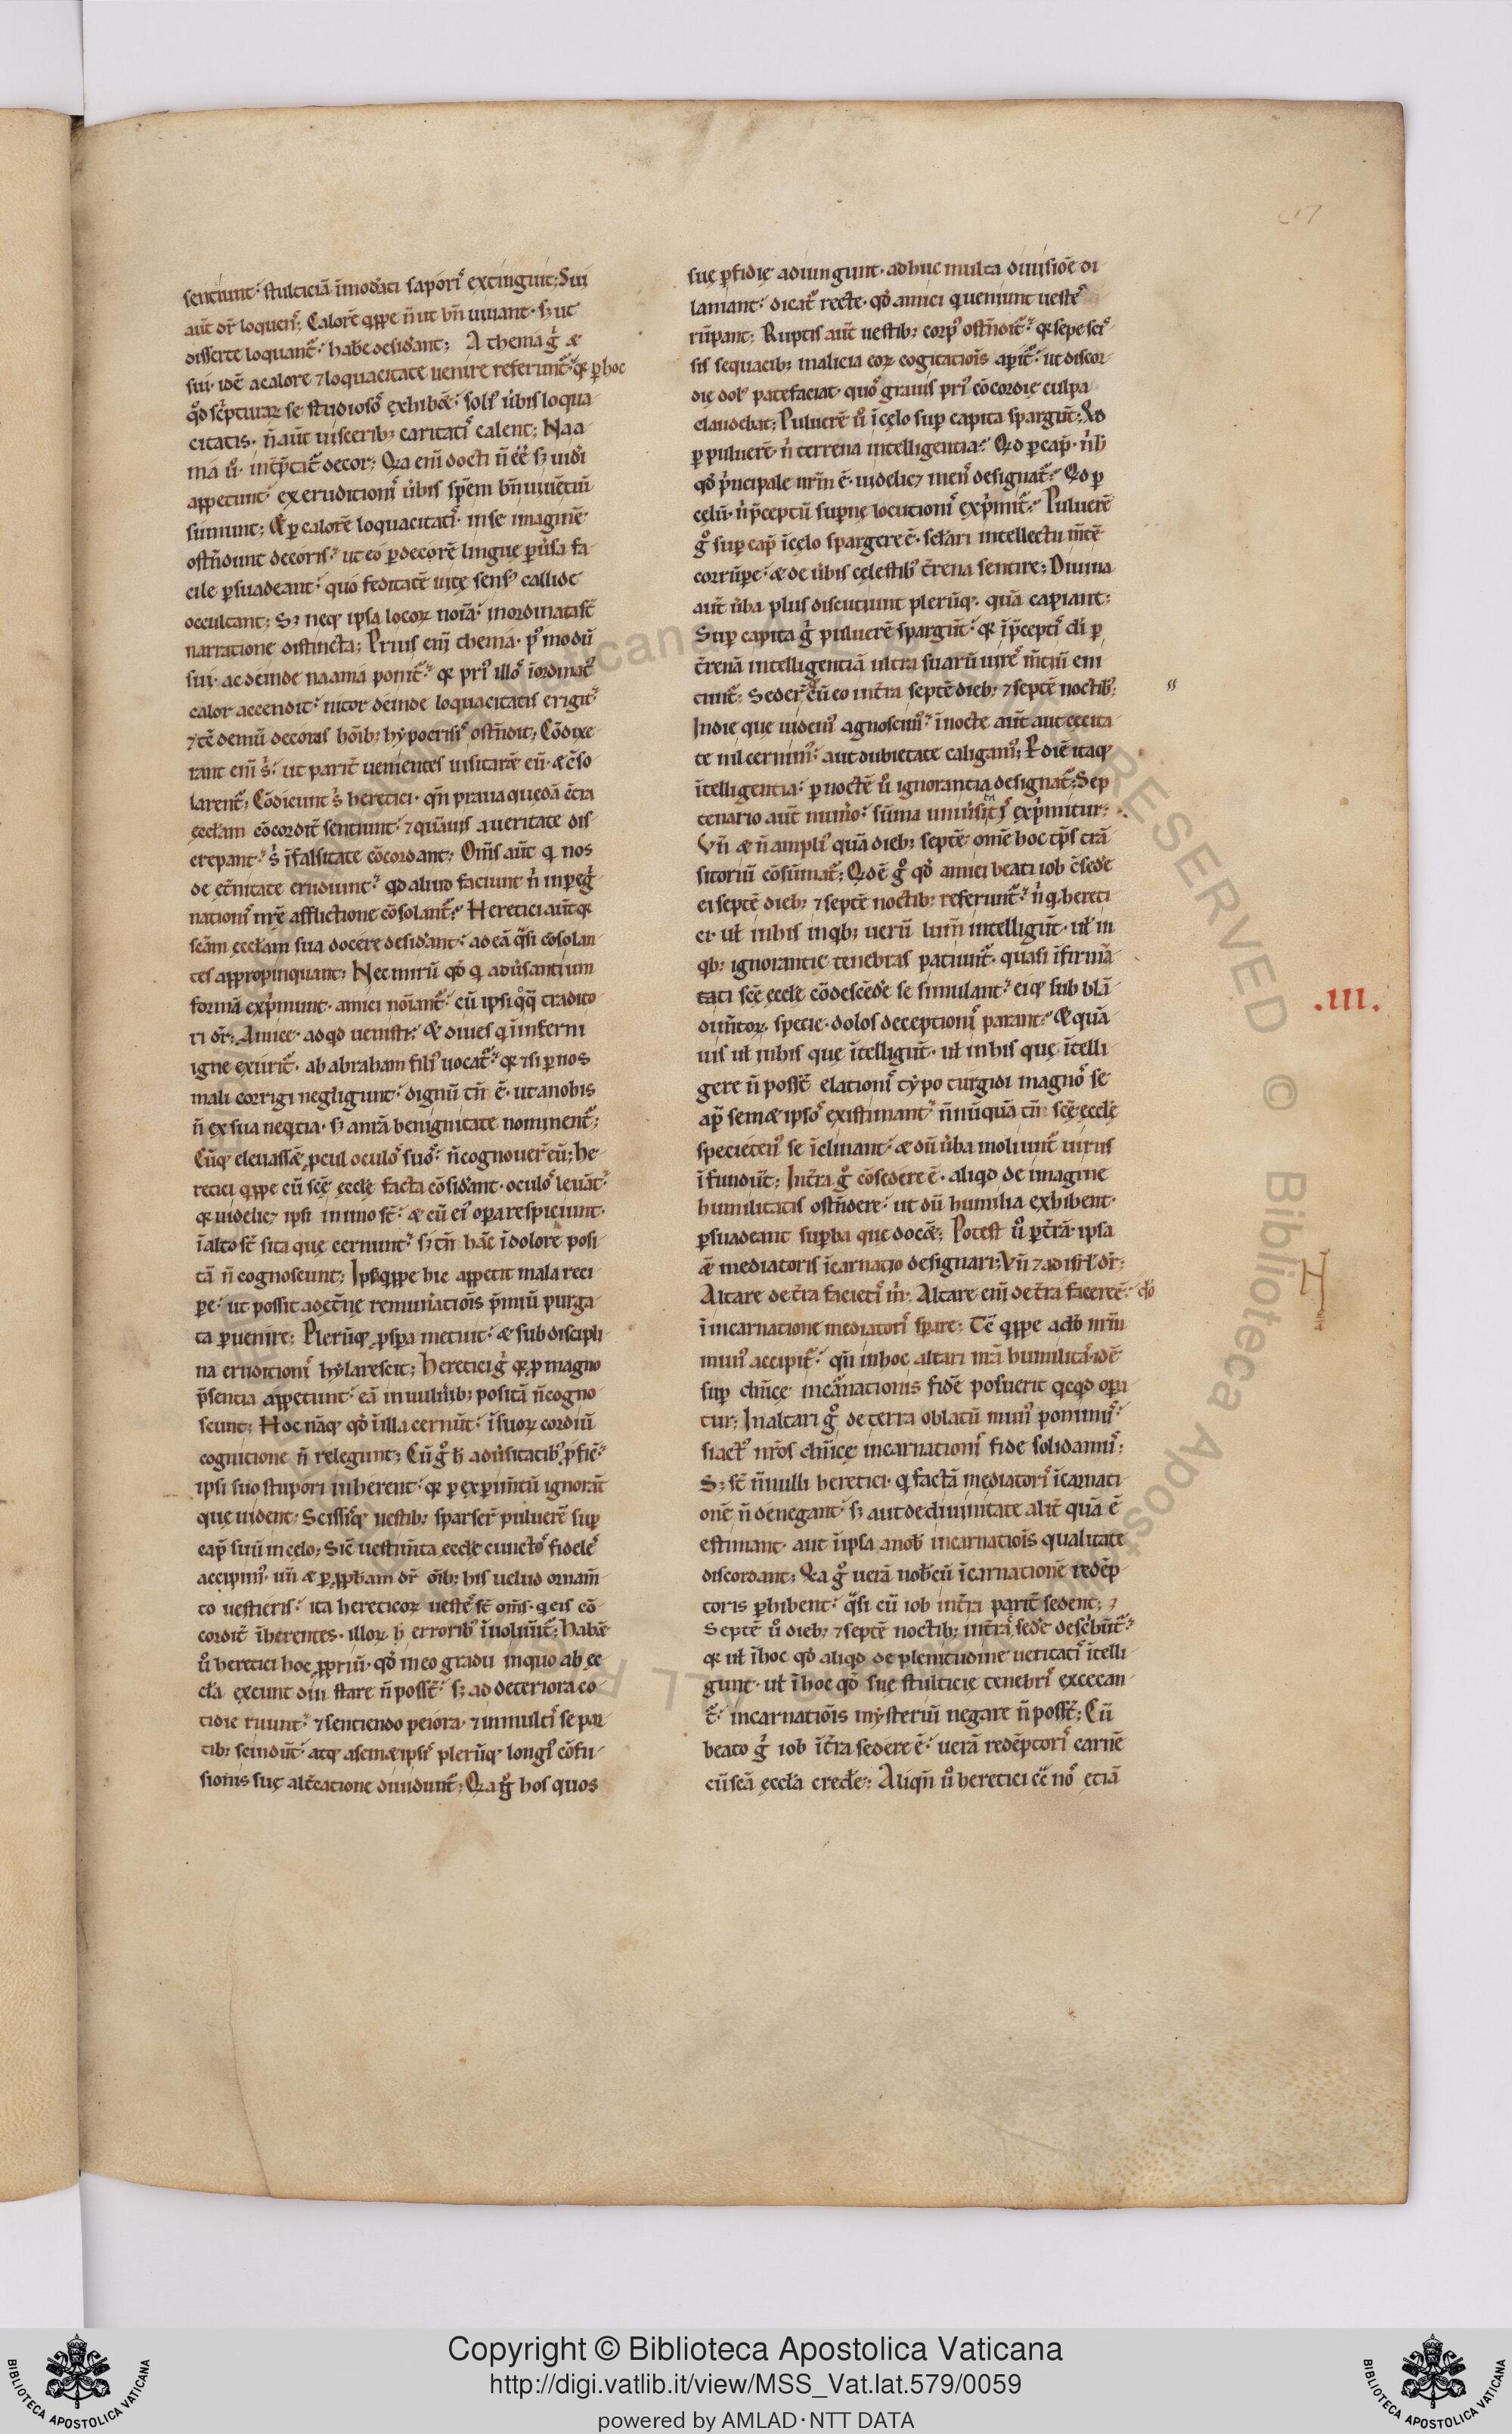 sentiunt· stulticiā īmod̓ati sapori᷒ extinguit; Sui
aut̄ dr̄ loquens; Calorē q̨ppe n̄ ut bn̄ uiuant· sȝ ut
disserte loquant᷒· habe᷒ desid̓ant; A themā g̓ &
sui· idē a calore ⁊ loquacitate uenire referunt᷒· q̨ ꝑ hoc
qd̓ sc̓pturaꝝ se studioso᷒ exhibēt· soli᷒ ūbis loqua
citatis· n̄ aut̄ uisceribȝ caritati᷒ calent; Naa
ma u̓· int̓p̄tat᷒ decor; Qa eni̅ docti n̄ e̅e̅ sȝ uid̓i
appetunt· ex eruditioni᷒ ūbis sp̄em bn̄ uiuētiū
sumunt; & ꝑ calorē loquacitati᷒· in se imaginē
ostn̄dunt decoris· ut eo ꝑ decorē lingue ꝑuer̓sa fa
cile ꝑsuadeant· quo feditatē uite sens᷒ callide
occultant; Sȝ neq̨ ipsa locoꝝ noīa· inordinata st̄
narratione distincta; Prius eni̅ themā· p᷒ modū
sui· ac deinde naama ponit᷒· q̨ pri᷒ illo᷒ īordinat᷒
calor accendit· nitor deinde loquacitatis erigit᷒
⁊ tē demū decoras ho̅ibȝ hypocrisi᷒ ostn̄dit; Cōdixe
rant eni̅ s̓· ut parit̄ uenientes uisitarēt eū· & c̄so
larent᷒; Cōdicunt s̓ heretici· qn̄ praua quedā c̄tra
eccl̄am cōcordit̄ sentiunt· ⁊ quāuis a ueritate dis
crepant· s̓ ī falsitate cōcordant; Om̄s aut̄ q̨ nos
de et̄nitate erudiunt· qd aliud faciunt n̄ in ꝑeg̓
nationi᷒ nr̄e afflictione cōsolant᷒? Heretici aut̄ q̨
scām eccl̄am sua docere desid̓ant· ad eā q̓si cōsolan
tes appropinquant; Nec mirū qd̓ q̨ adu̓santium
formā exp̓munt· amici noīant᷒· cū ipsi q̨q̨ tradito
ri dr̄; Amice· ad qd uenisti· & diues q̨ ī inferni
igne exurit᷒· ab abraham fili᷒ uocat᷒· q̨ ⁊ si ꝑ nos
mali corrigi negligunt· dignū tn̄ ē· ut a nobis
n̄ ex sua neq̨tia· sȝ a nr̄a benignitate nominent᷒;
Cūq̨ eleuassēt ꝓcul oculo᷒ suo᷒· n̄ cognouer̄ eū; he
retici q̨ppe cū sc̄e eccl̄e facta cōsid̓ant· oculo᷒ leuāt·
q̨ uidelicȝ ipsi in imo st̄· & cū ei᷒ oꝑa respiciunt·
ī alto st̄ sita que cernunt· sȝ tn̄ hāc ī dolore posi
tā n̄ cognoscunt; Ipsa q̨ppe hic appetit mala reci
ꝑe· ut possit ad et̄ne remun̓ationis p̄miū purga
ta ꝑuenire; Plerūq̨ ꝓsꝑa metuit· & sub discipli
na eruditioni᷒ hylarescit; Heretici g̓ q̨ ꝑ magno
p̄sentia appetunt· eā in uuln̓ibȝ positā n̄ cogno
scunt; Hoc nāq̨ qd̓ ī illa cernūt· ī suoꝝ cordiū
cognitione n̄ relegunt; Cū g̓ h̄ adu̓sitatib᷒ ꝓficit᷒·
ipsi suo stupori inherent· q̨ ꝑ exꝑim̄tū ignorāt
que uident; Scissiq̨ uestibȝ sparser̄ puluerē suꝑ
cap̄ suū in celo; Sic̄ uestim̄ta eccl̄e cuncto᷒ fidele᷒
accipim᷒· un̄ & ꝑ ꝓph̄am dr̄ oībȝ his uelud ornam̄
to uestieris· ita hereticoꝝ ueste᷒ st̄ om̄s· q̨ eis cō
cordit̄ īherentes· illoꝝ h̄ errorib᷒ īuoluūt᷒; Habēt
u̓ heretici hoc ꝓpriū· qd̓ in eo gradu in quo ab ec
cl̄a exeunt diu stare n̄ poss̄t· sȝ ad deteriora co
tidie ruunt· ⁊ sentiendo peiora· ⁊ in multi᷒ se par
tibȝ scindūt· atq̨ a semetipsi᷒ plerūq̨ longi᷒ cōfu
sionis sue alt̄catione diuidunt᷒; Qa g̓ hos quos
sue ꝑfidie adiungunt· adhuc multa diuisiōe di
laniant· dicat᷒ recte· qd̓ amici q̨ ueniunt ueste᷒
rūpant; Ruptis aut̄ uestibȝ corp᷒ ostn̄dit᷒· q̨ sepe sci᷒
sis sequacibȝ malicia eoꝝ cogitationis aperit᷒· ut discor
die dol᷒ patefaciat· quo᷒ grauis pri᷒ cōcordie culpa
claudebat; Puluerē u̓ ī celo suꝑ capita spargūt; Qd
ꝑ puluerē· n̓ terrena intelligentia? Qd ꝑ cap̄· n̓ h̄
qd̓ p̓ncipale nr̄m ē· uidelicȝ men᷒ designat᷒? Qd ꝑ
celū· n̓ p̄ceptū suꝑne locutioni᷒ exp̓mit᷒? Puluerē
g̓ suꝑ cap̄ ī celo spargere ē· sc̄lari intellectu m̄tē
corrūpe· & de ūbis celestib᷒ t̄rena sentire; Diuina
aut̄ ūba plus discutiunt plerūq̨· quā capiant;
Suꝑ capita g̓ puluerē spargūt· q̨ ī p̄cepti᷒ di̅ ꝑ
t̄renā intelligentiā ultra suarū uire᷒ m̄tiū eni
tunt᷒; Seder̄ cū eo in t̄ra septē diebȝ ⁊ septē noctib᷒;
In die que uidem᷒ agnoscim᷒· ī nocte aut̄ aut cecita
te nil cernim᷒· aut dubietate caligam᷒; Ꝑ diē itaq̨
ītelligentia· ꝑ noctē u̓ ignorantia designat᷒; Sep
tenario aut̄ num̓o· sūma uniu̓sitati᷒ exp̓mitur·
Vn̄ & n̄ ampli᷒ quā diebȝ septē· om̄e hoc tp̄s trā
sitoriū cōsūmat᷒; Qd ē g̓ qd̓ amici beati iob c̄sede᷒
ei septē diebȝ ⁊ septē noctibȝ referunt᷒· n̓ q̨ hereti
ci· ul̄ in his in q̨bȝ uerū lum̄ intelligūt· ul̄ in
q̨bȝ ignorantie tenebras patiunt᷒· quasi īfirmā
tati sc̄e eccl̄e cōdescēde᷒ se simulant· eiq̨ sub blā
dim̄toꝝ specie· dolos deceptioni᷒ parant· & quā
uis ul̄ in his que ītelligūt· ul̄ in his que ītelli
gere n̄ poss̄t elationi᷒ typo turgidi magno᷒ se
ap̄ semetipso᷒ existimant· n̄nūquā tn̄ sc̄e eccl̄e
specieten᷒ se īclinant· & dū ūba moliunt᷒ uirus
īfundūt; In t̄ra g̓ cōsedere ē· aliq̨d de imagine
humilitatis ostn̄dere· ut dū humilia exhibent·
ꝑsuadeant suꝑba que docēt; Potest u̓ ꝑ t̄rā· ipsa
& mediatoris īcarnatio designari; Vn̄ ⁊ ad isrl̄ dr̄;
Altare de t̄ra facieti᷒ m̓; Altare eni̅ de t̄ra facere ē· do̅
ī incarnatione mediatori᷒ sꝑare; Tē q̨ppe a do̅ nr̄m
mun᷒ accipit᷒· qn̄ in hoc altari nr̄a humilita᷒· idē
suꝑ dn̄ice incarnationis fidē posuerit q̨cq̨d oꝑa
tur; In altari g̓ de terra oblatū mun᷒ ponim᷒·
si act᷒ nr̄os dn̄ice incarnationi᷒ fide solidam᷒;
Sȝ st̄ n̄nulli heretici· q̨ factā mediatori᷒ īcarnati
onē n̄ denegant· sȝ aut de diuinitate alit̄ quā ē
estimant· aut ī ipsa a nob̄ incarnationis qualitate
discordant; Qa g̓ uerā nob̄cū īcarnationē redēp
toris ꝑhibent· q̓si cū iob in t̄ra parit̄ sedent;
Septē u̓ diebȝ ⁊ septē noctibȝ in t̄ra sede᷒ desc̓būt᷒·
q̨ ul̄ ī hoc qd̓ aliq̨d de plenitudine ueritati᷒ ītelli
gunt· ul̄ ī hoc qd̓ sue stulticie tenebri᷒ excecan
t᷒· incarnationis mysteriū negare n̄ poss̄t; Cū
beato g̓ iob ī t̄ra sedere ē· uerā redēptori᷒ carnē
cū scā eccl̄a crede᷒; Aliqn̄ u̓ heretici e̅e̅ no᷒ etiā
.III.
H
Copyright © Biblioteca Apostolica Vaticana
http://digi.vatlib.it/view/MSS_Vat.lat.579/0059
powered by AMLAD·NTT DATA
BIBLIOTECA APOSTOLICA VATICANA
BIBLIOTECA APOSTOLICA VATICANA